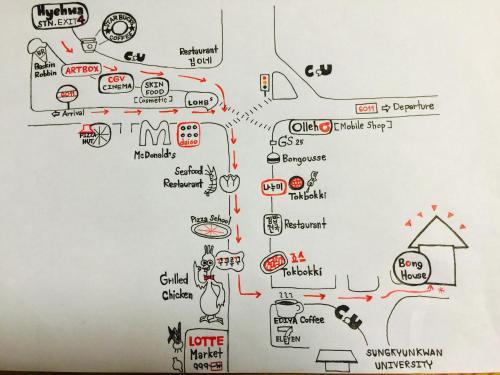 Hyehwa
STN. EXIT 4
STARBUCKS
COFFEE
CU
Restaurant
BR
Baskin
Robbin
ARTBOX
CGV
CINEMA
SKIN
FOOD
[Cosmetic]
LOHB's
CU
6011
← Arrival
6011 ⇒ Departure
PIZZA
HUT
McDonald's
daiso
Olleh [Mobile Shop]
GS 25
Bongousse
Seafood
Restaurant
나누미
Tokbokki
Pizza School
Restaurant
Grilled
Chicken
Tokbokki
Bong
House
EDIYA Coffee
7
ELEVEN
CU
LOTTE
Market
999
SUNGKYUNKWAN
UNIVERSITY